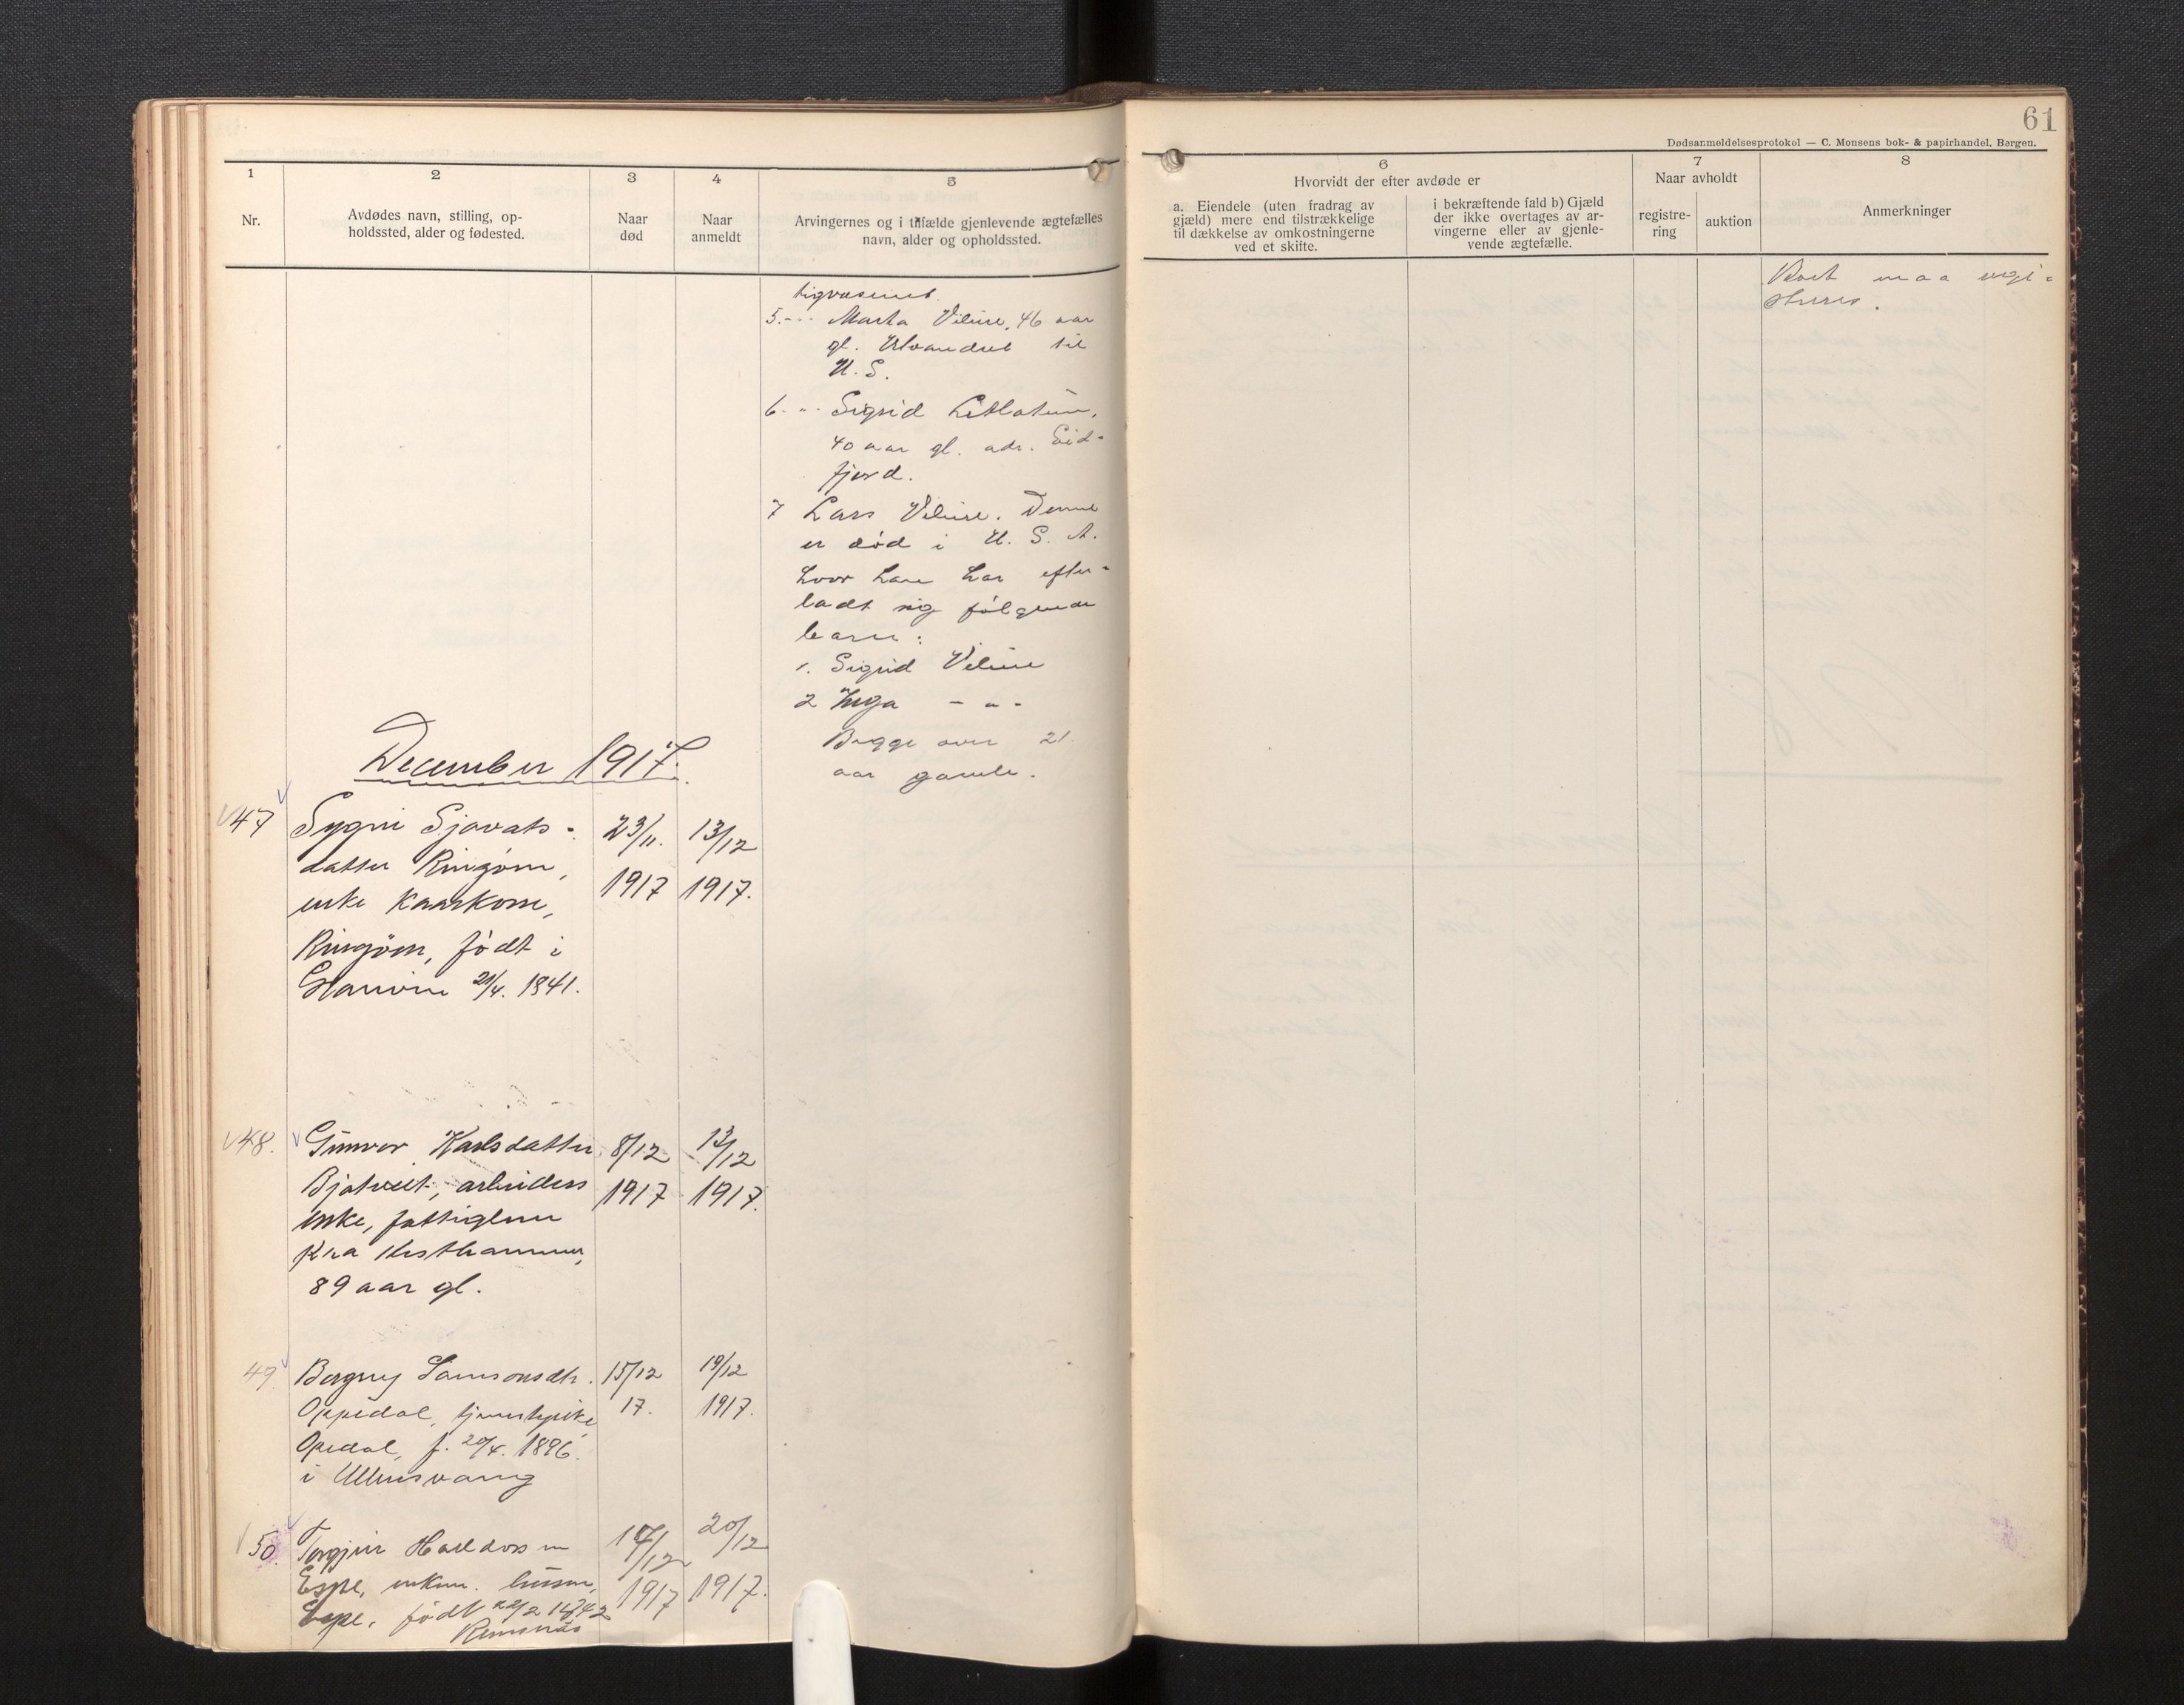 61
Dødsanmeldelsesprotokol — C. Monsens bok- & papirhandel, Bergen.
1
Nr.
2
Avdødes navn, stilling, op-
holdssted, alder og fødested.
3
Naar
død
4
Naar
anmeldt
5
Arvingernes og i tilfælde gjenlevende ægtefælles
navn, alder og opholdssted.
6
Hvorvidt der efter avdøde er
a. Eiendele (uten fradrag av
gjæld) mere end tilstrækkelige
til dækkelse av omkostningerne
ved et skifte.
i bekræftende fald b) Gjæld
der ikke overtages av ar-
vingerne eller av gjenle-
vende ægtefælle.
7
Naar avholdt
registre-
ring
auktion
8
Anmerkninger
tigvæsenet.
5. -"- Marta Velure, 46 aar
gl. Utvandret til
U. S.
6. " Sigrid Litlatun,
40 aar gl. adr. Eid-
fjord.
7 Lars Velure. Denne
er død i U. S. A.
hvor han har efter-
ladt sig følgende
barn:
1. Sigrid Velure
2 Inga - " -
Begge over 21
aar gamle.
Boet maa regi-
streres.
December 1917.
47
Sygni Sjovats-
datter Ringøen,
enke kaarkone,
Ringøen, født i
Granvin 21/4. 1841.
23/11.
1917
13/12
1917.
48.
Gunvor Karlsdatter
Bjotveit, arbeiders
enke, fattiglem
fra Kvithammer,
89 aar gl.
8/12
1917
13/12
1917.
49.
Bergny Samsonsdtr.
Oppedal, tjenestepike,
Opedal, f. 20/4. 1896.
i Ullensvang
15/12
17.
19/12
1917.
50.
Torgjer Halldorsen
Espe, enkem.
Espe, født
14/12
1917
20/12
1917.